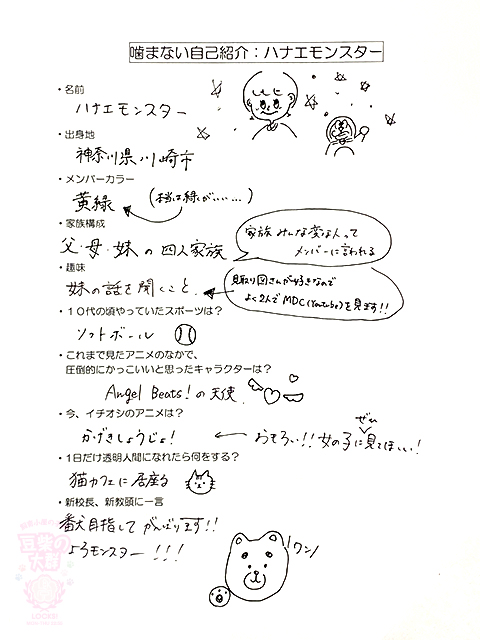 噛まない自己紹介：ハナエモンスター
・名前
ハナエモンスター
・出身地
神奈川県川崎市
・メンバーカラー
黄緑 (本当は緑がいい…)
・家族構成
父・母・妹の四人家族
家族みんな変な人って
メンバーに言われる
・趣味
妹の話を聞くこと
見取り図さんが好きなので
よく2人でMDC(Youtube)を見ます!!
・１０代の頃やっていたスポーツは？
ソフトボール
・これまで見たアニメのなかで、
圧倒的にかっこいいと思ったキャラクターは？
Angel Beats!の天使
・今、イチオシのアニメは？
かげきしょうじょ! ← おもろい!!女の子にぜひ見てほしい!
・1日だけ透明人間になれたら何をする？
猫カフェに居座る
・新校長、新教頭に一言
番犬目指してがんばります!!
よろモンスター!!!
ワン!
豆柴の
大群
LOCKS!